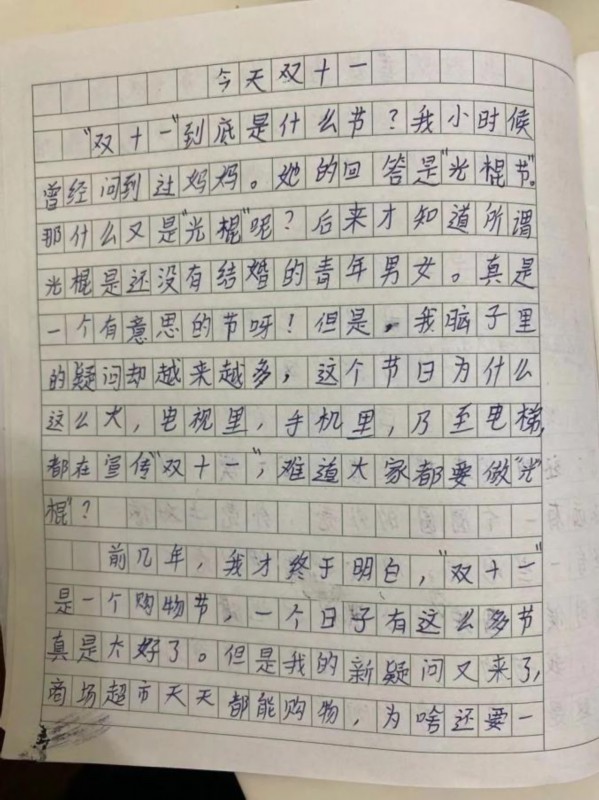 今天双十一
“双十一”到底是什么节？我小时候
曾经问到过妈妈。她的回答是“光棍节”。
那什么又是“光棍”呢？后来才知道所谓
光棍是还没有结婚的青年男女。真是
一个有意思的节呀！但是，我脑子里
的疑问却越来越多，这个节日为什么
这么大，电视里，手机里，乃至电梯，
都在宣传“双十一”，难道大家都要做“光
棍”？
前几年，我才终于明白，“双十一”
是一个购物节，一个日子有这么多节
真是太好了。但是我的新疑问又来了，
商场超市天天都能购物，为啥还要一